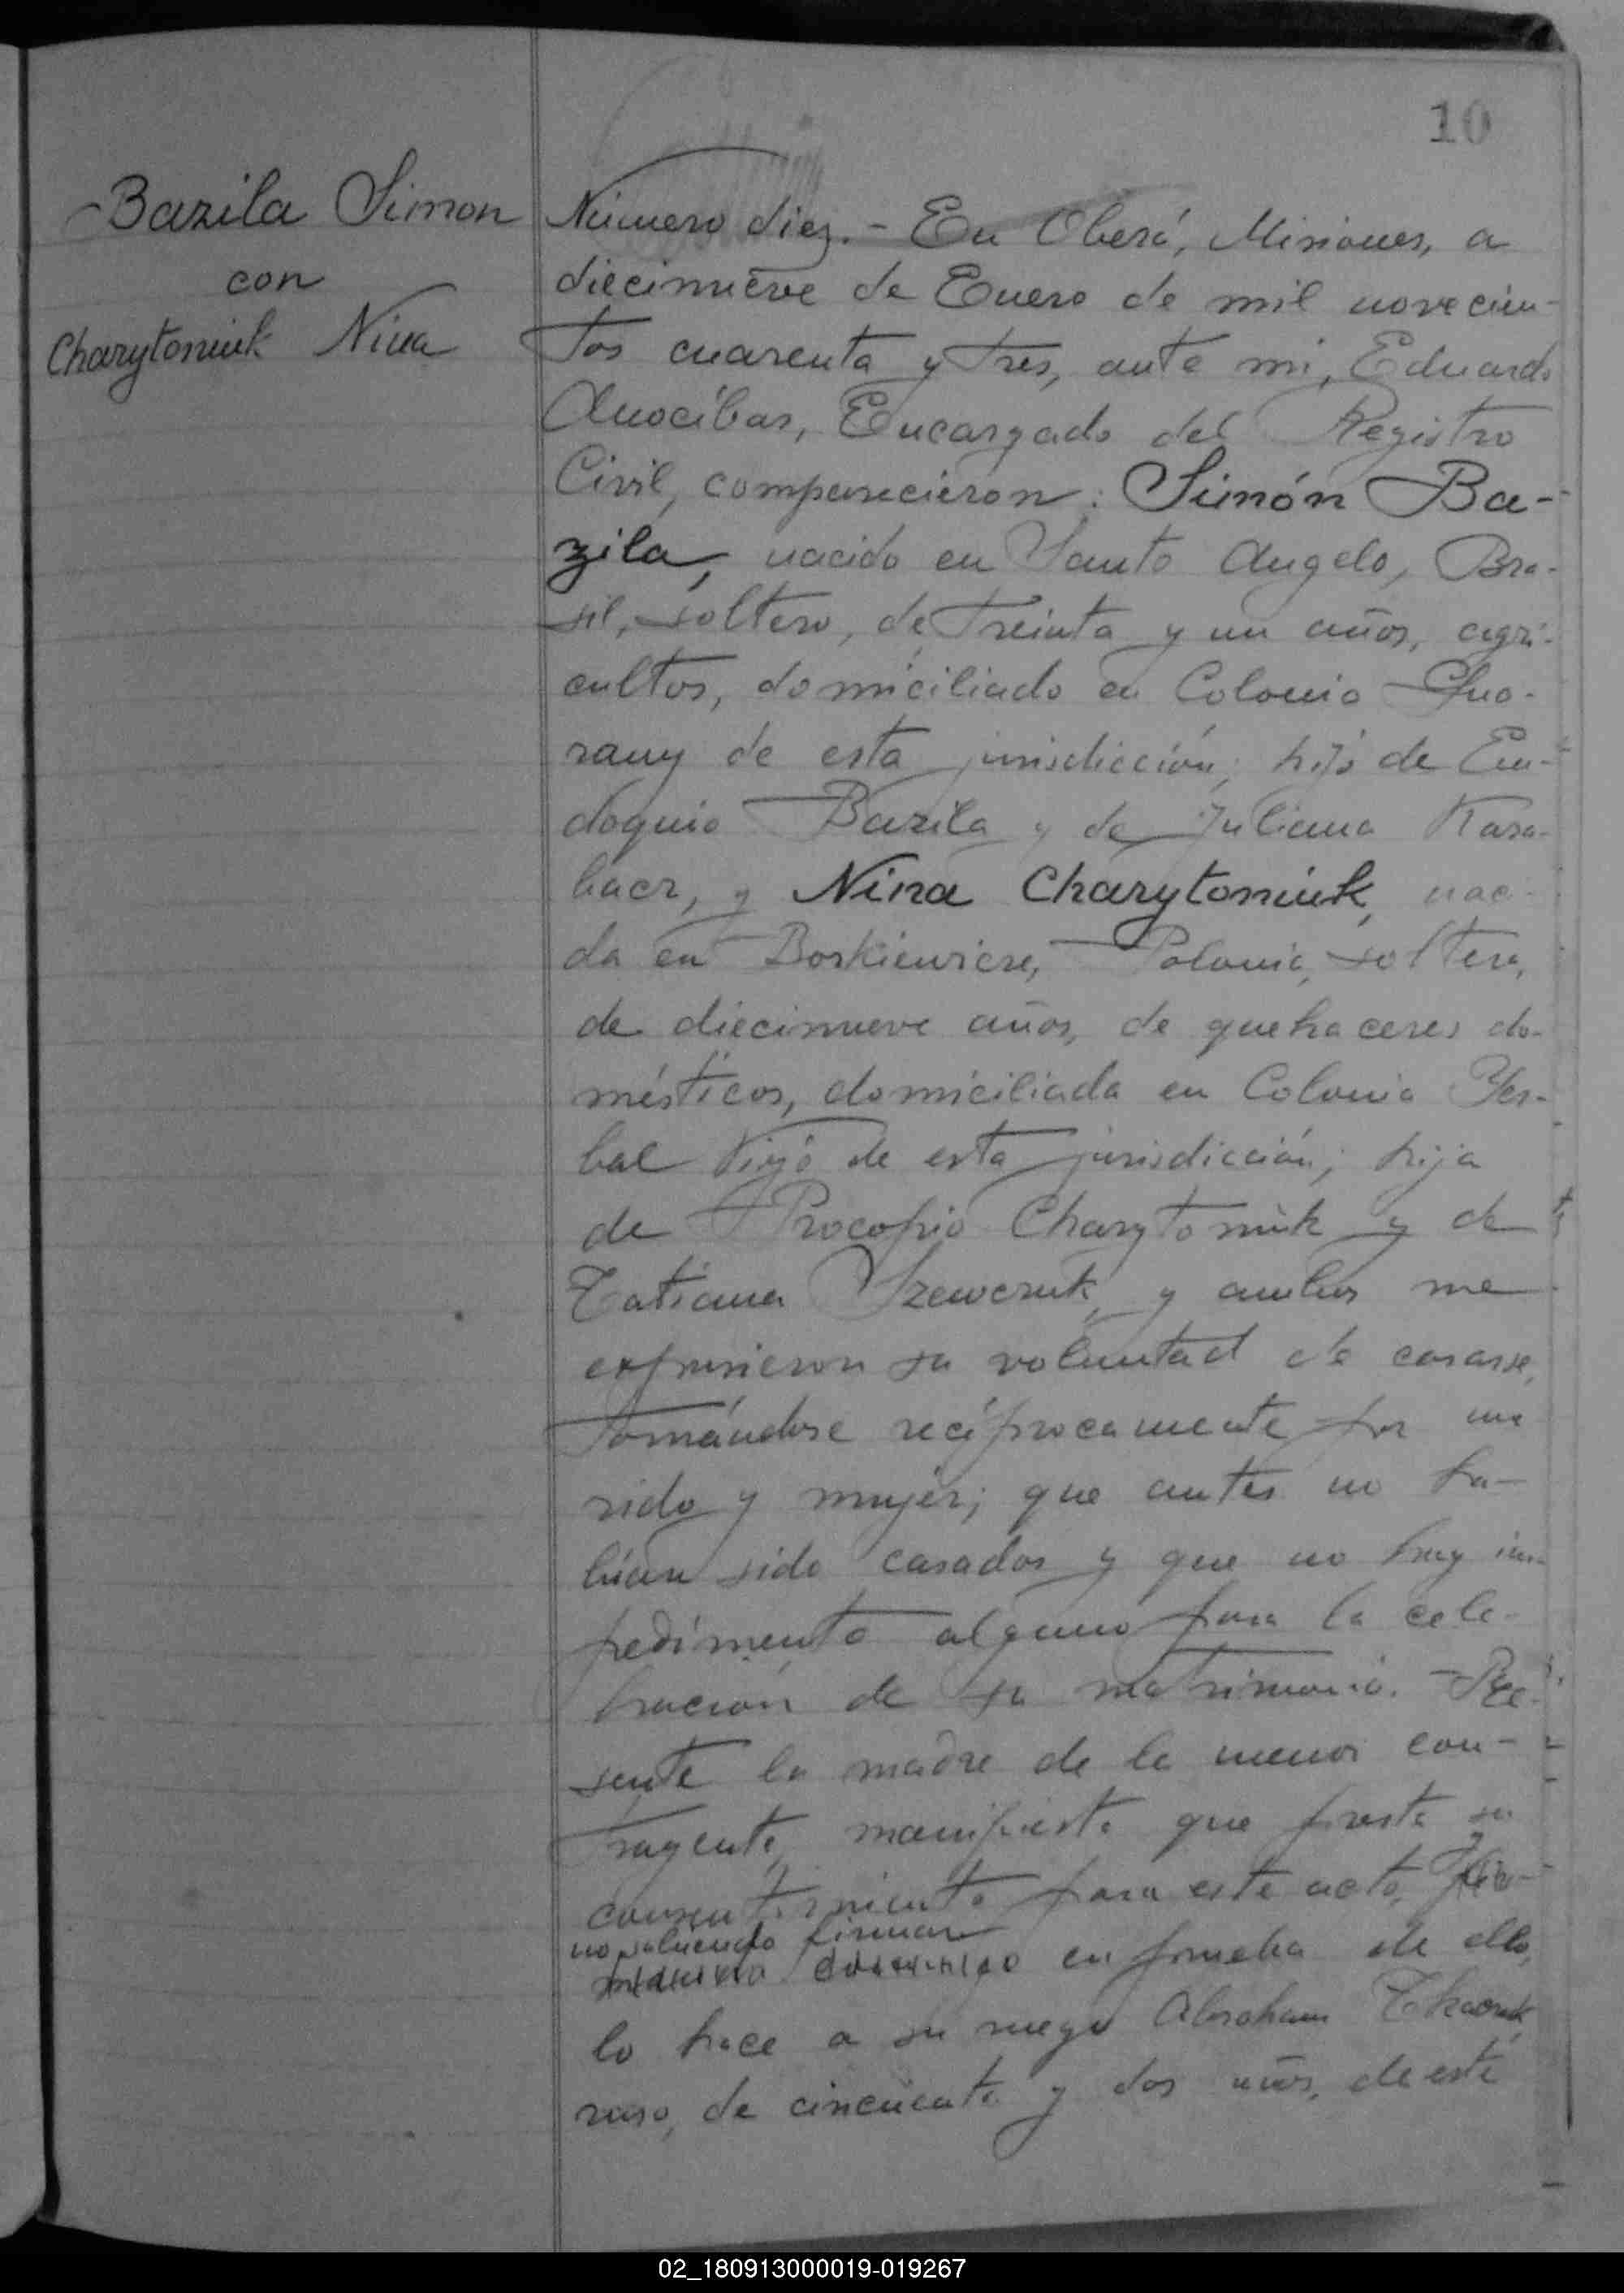 10
Bazila Simon
con
Charytoniuk Nina
Número diez.- En Oberá, Misiones, a
diecinueve de Enero de mil novecien-
tos cuarenta y tres, ante mi, Eduardo
Anocíbar, Encargado del Registro
Civil, comparecieron: Simón Ba-
zila, nacido en Santo Angelo, Bra-
sil, soltero, de treinta y un años, agri-
cultor, domiciliado en Colonia Gua-
rany de esta jurisdicción; hijo de Eu-
doquio Bazila y de Juliana Kara-
bacz, y Nina Charytoniuk, naci-
da en Polonia, soltera,
de diecinueve años, de quehaceres do-
mésticos, domiciliada en Colonia Yer-
bal Viejo de esta jurisdicción; hija
de Procopio Charytoniuk y de
Tatiana Szewczuk, y ambos me
expusieron su voluntad de casarse,
tomándose recíprocamente por ma
rido y mujer; que antes no ha-
bían sido casados y que no hay im-
pedimento alguno para la cele-
bración de su matrimonio. - Pre-
sente la madre de la menor con-
trayente, manifiesta que presta su
consentimiento para este acto,
no sabiendo firmar
en prueba de ello,
lo hace a su ruego Abraham Tkaczuk,
ruso, de cincuenta y dos años, de este
02_180913000019-019267